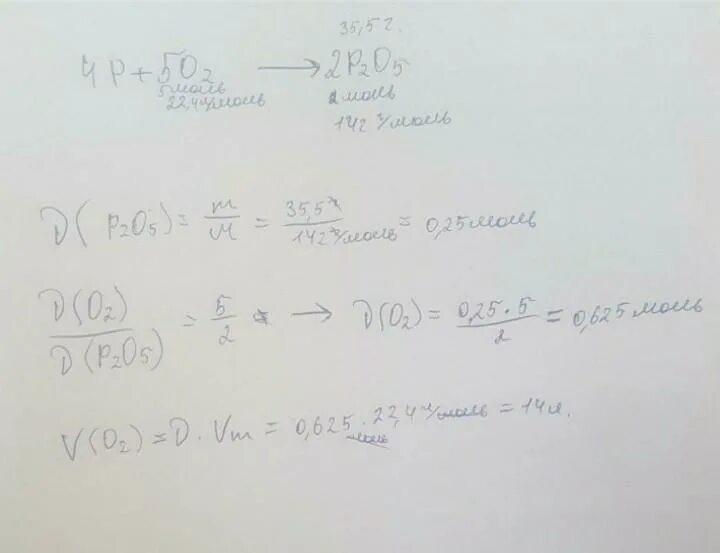 35,5 г.
4P + 5O₂ ⟶ 2P₂O₅
5 моль 2 моль
22,4 л/моль 142 г/моль
D(P₂O₅) = m/M = 35,5 г/142 г/моль = 0,25 моль
D(O₂)/D(P₂O₅) = 5/2 → D(O₂) = 0,25 · 5/2 = 0,625 моль
V(O₂) = D · Vm = 0,625 моль · 22,4 л/моль = 14 л.